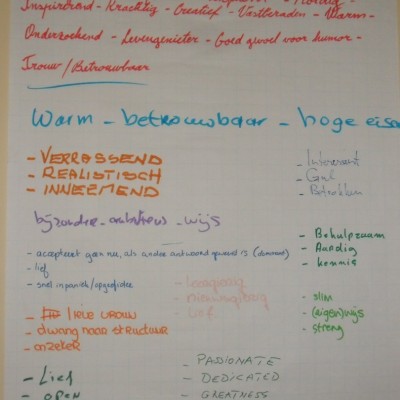 Inspirerend - Krachtig - Creatief - Vastberaden - Warm -
Onderzoekend - Levengenieter - Goed gevoel voor humor -
Trouw / Betrouwbaar
Warm - betrouwbaar - hoge eise
- VERRASSEND
- REALISTISCH
- INNEMEND
- Interessant
- Gul
- Betrokken
bijzonder - ambitieus - wijs
- Behulpzaam
- Aardig
- kennis
- accepteert geen nee, als ander antwoord gewenst is (dominant)
- lief
- snel in paniek/opgefokt
- leergierig
- nieuwsgierig
- lief
- slim
- (eigen)wijs
- streng
- lieve vrouw
- dwang naar structuur
- onzeker
- Lief
- open
- PASIONATE
- DEDICATED
- GREATNESS